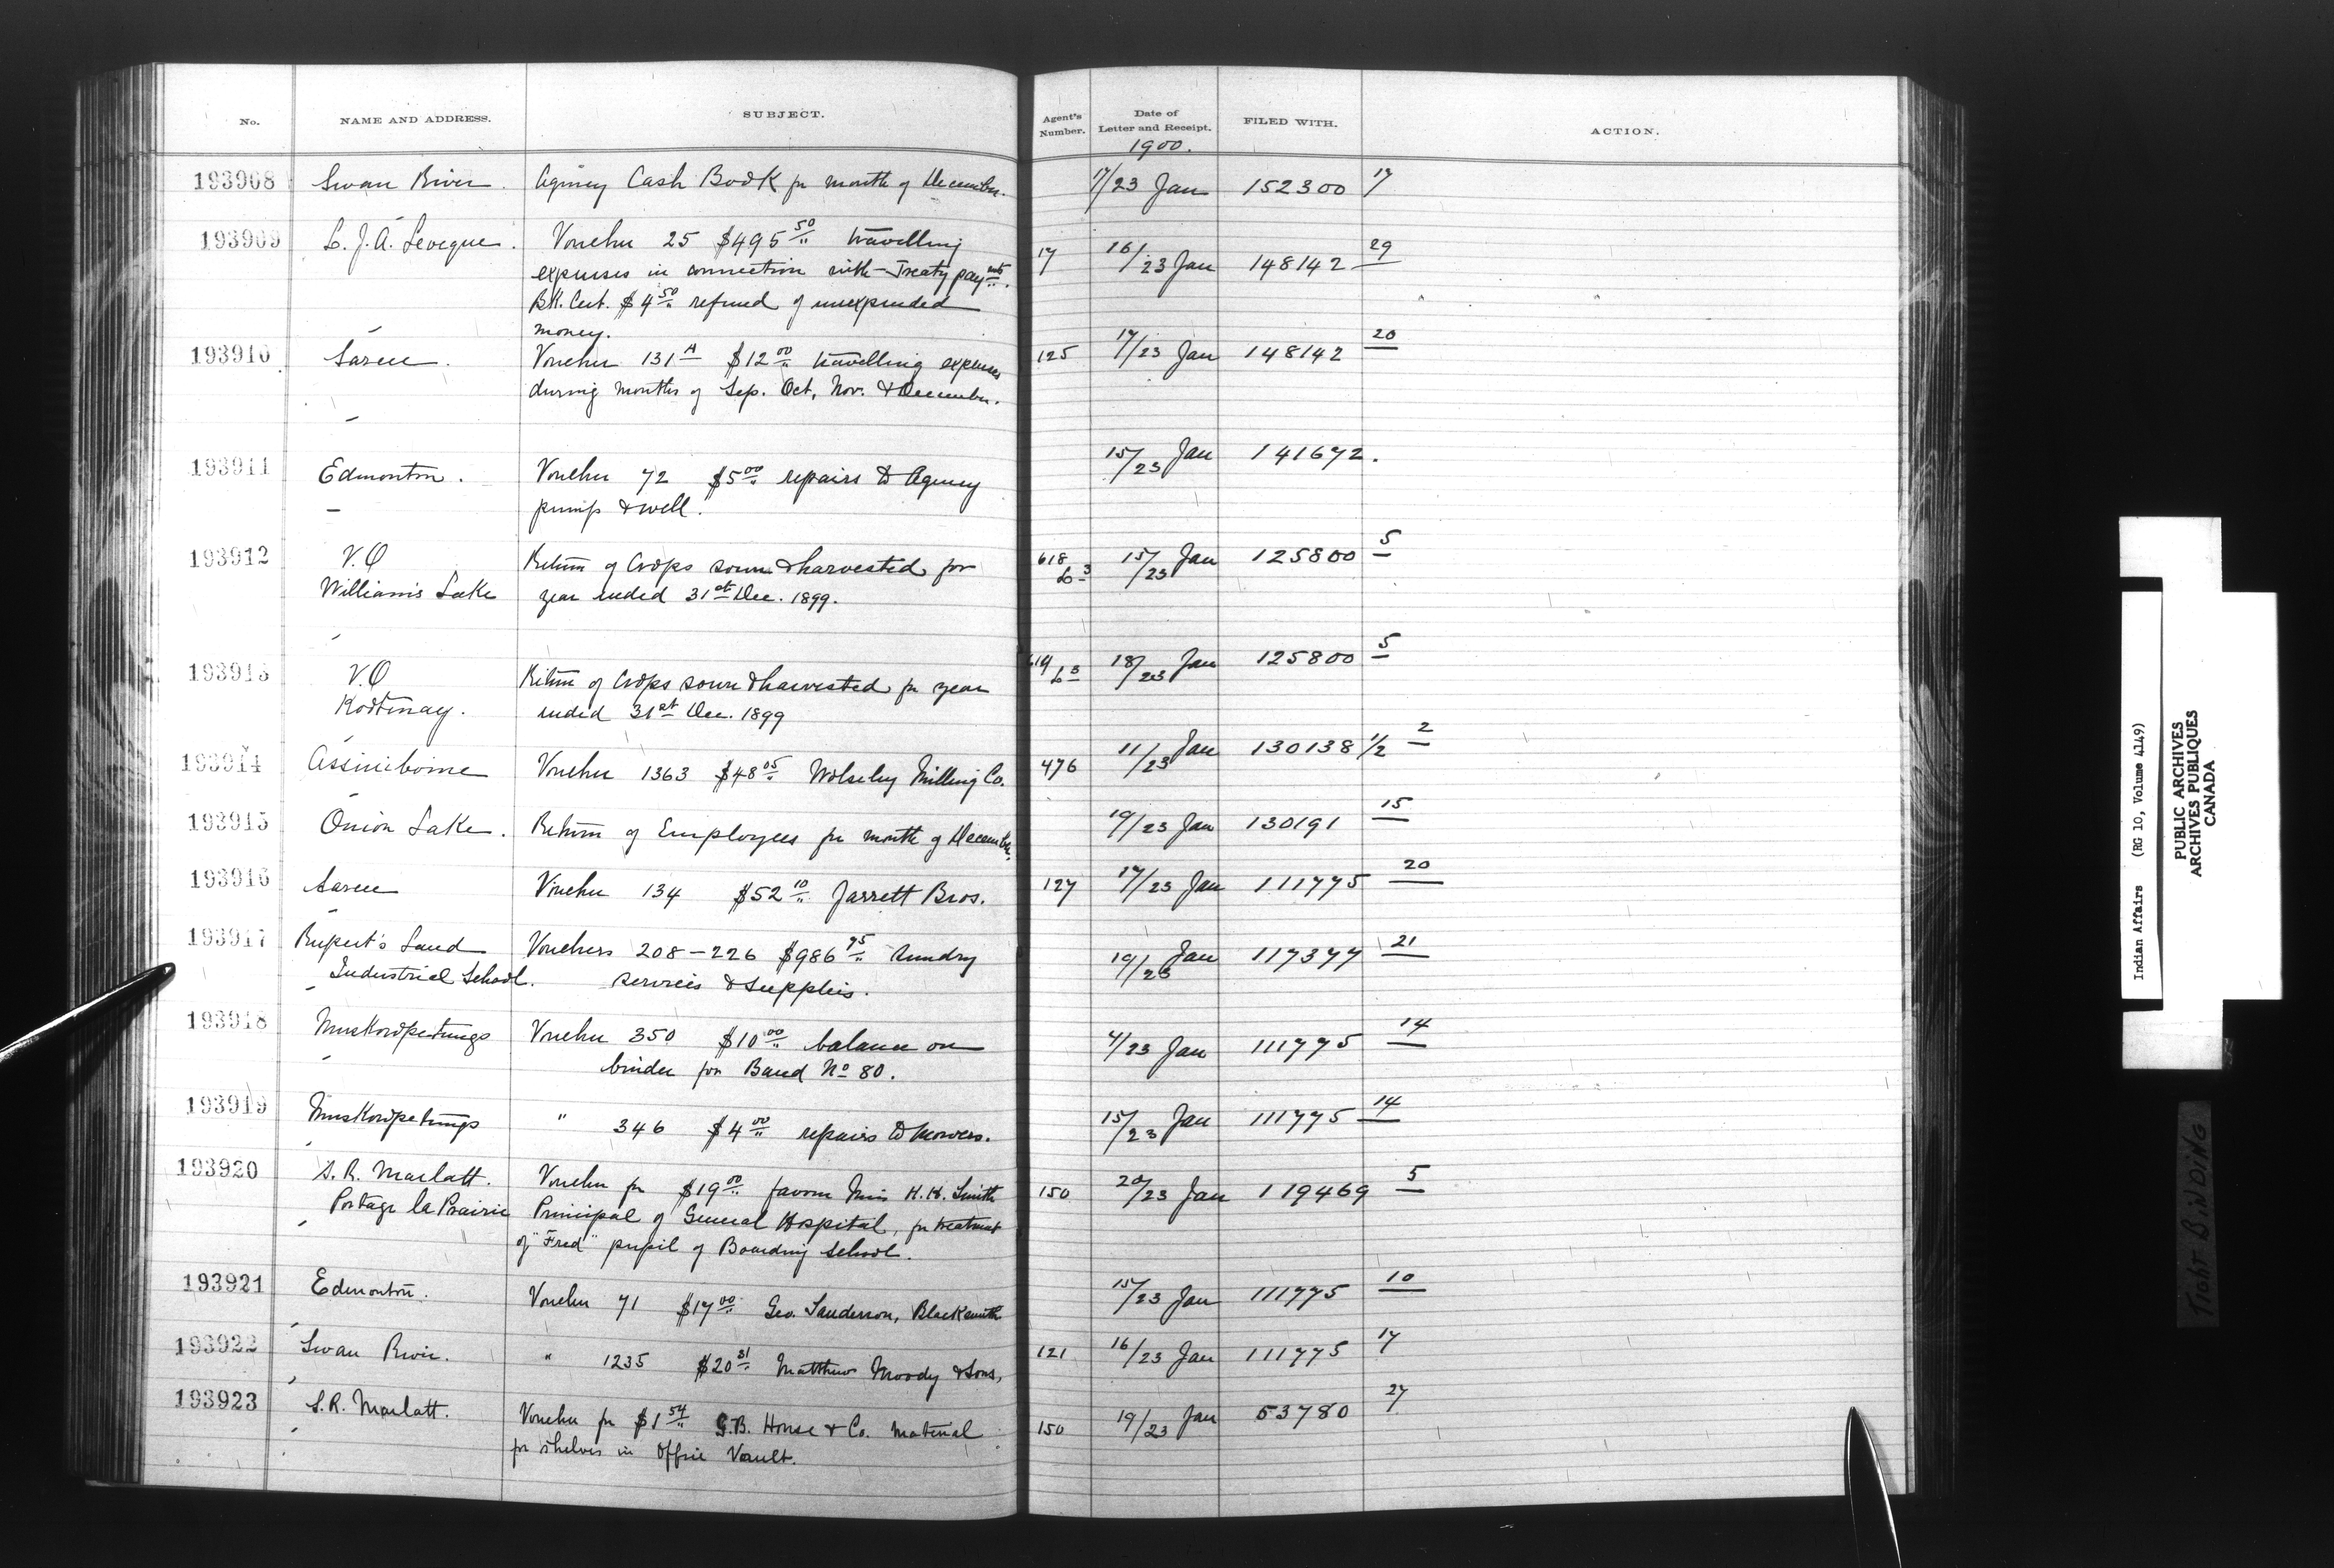 No. NAME AND ADDRESS. SUBJECT. Agent's Number. Date of Letter and Receipt. FILED WITH. ACTION.
1900.
193908 Swan River. Agency Cash Book for month of December. 17/23 Jan 152300 17
193909 L. J. A. Leveque. Voucher 25 $495 50 travelling 17 16/23 Jan 148142 29
expenses in connection with Treaty paymts.
Bk. Cert. $4 50 refund of unexpended
money.
193910 Sarcee. Voucher 131 A $12 00 travelling expenses 125 17/23 Jan 148142 20
during months of Sep. Oct. Nov. & December.
193911 Edmonton. Voucher 72 $5 00 repairs to Agency 15/23 Jan 141672.
pump & well.
193912 V.O Return of Crops sown & harvested for 618 15/23 Jan 125800 5
Williams Lake year ended 31st Dec. 1899.
193913 V.O Return of Crops sown & harvested for year 18/23 Jan 125800 5
Kootenay. ended 31st Dec. 1899
193914 Assiniboine Voucher 1363 $48 05 Wolseley Milling Co. 476 11/23 Jan 130138 1/2 2
193915 Onion Lake. Return of Employees for month of December. 19/23 Jan 130191 15
193916 Sarcee Voucher 134 $52 10 Jarrett Bros. 127 17/23 Jan 111775 20
193917 Rupert's Land Vouchers 208-226 $986 75 sundry 19/23 Jan 117377 21
Industrial School. services & supplies.
193918 Muskowpetungs Voucher 350 $10 00 balance on 4/23 Jan 111775 14
binder for Band No 80.
193919 Muskowpetungs " 346 $4 00 repairs to mowers. 15/23 Jan 111775 14
193920 S. R. Marlatt. Voucher for $19 00 favour Miss K. K. Smith 150 20/23 Jan 119469 5
Portage la Prairie Principal of General Hospital, for treatment
of "Fred" pupil of Boarding School.
193921 Edmonton. Voucher 71 $17 00 Geo. Sanderson, Blacksmith 15/23 Jan 111775 10
193922 Swan River. " 1235 $20 31 Matthew Moody & Sons, 121 16/23 Jan 111775 17
193923 S. R. Marlatt. Voucher for $1 54 G.B. House & Co. material 150 19/23 Jan 53780 27
for shelves in Office Vault.
Indian Affairs (RG 10, Volume 4149)
PUBLIC ARCHIVES
ARCHIVES PUBLIQUES
CANADA
TIGHT BINDING